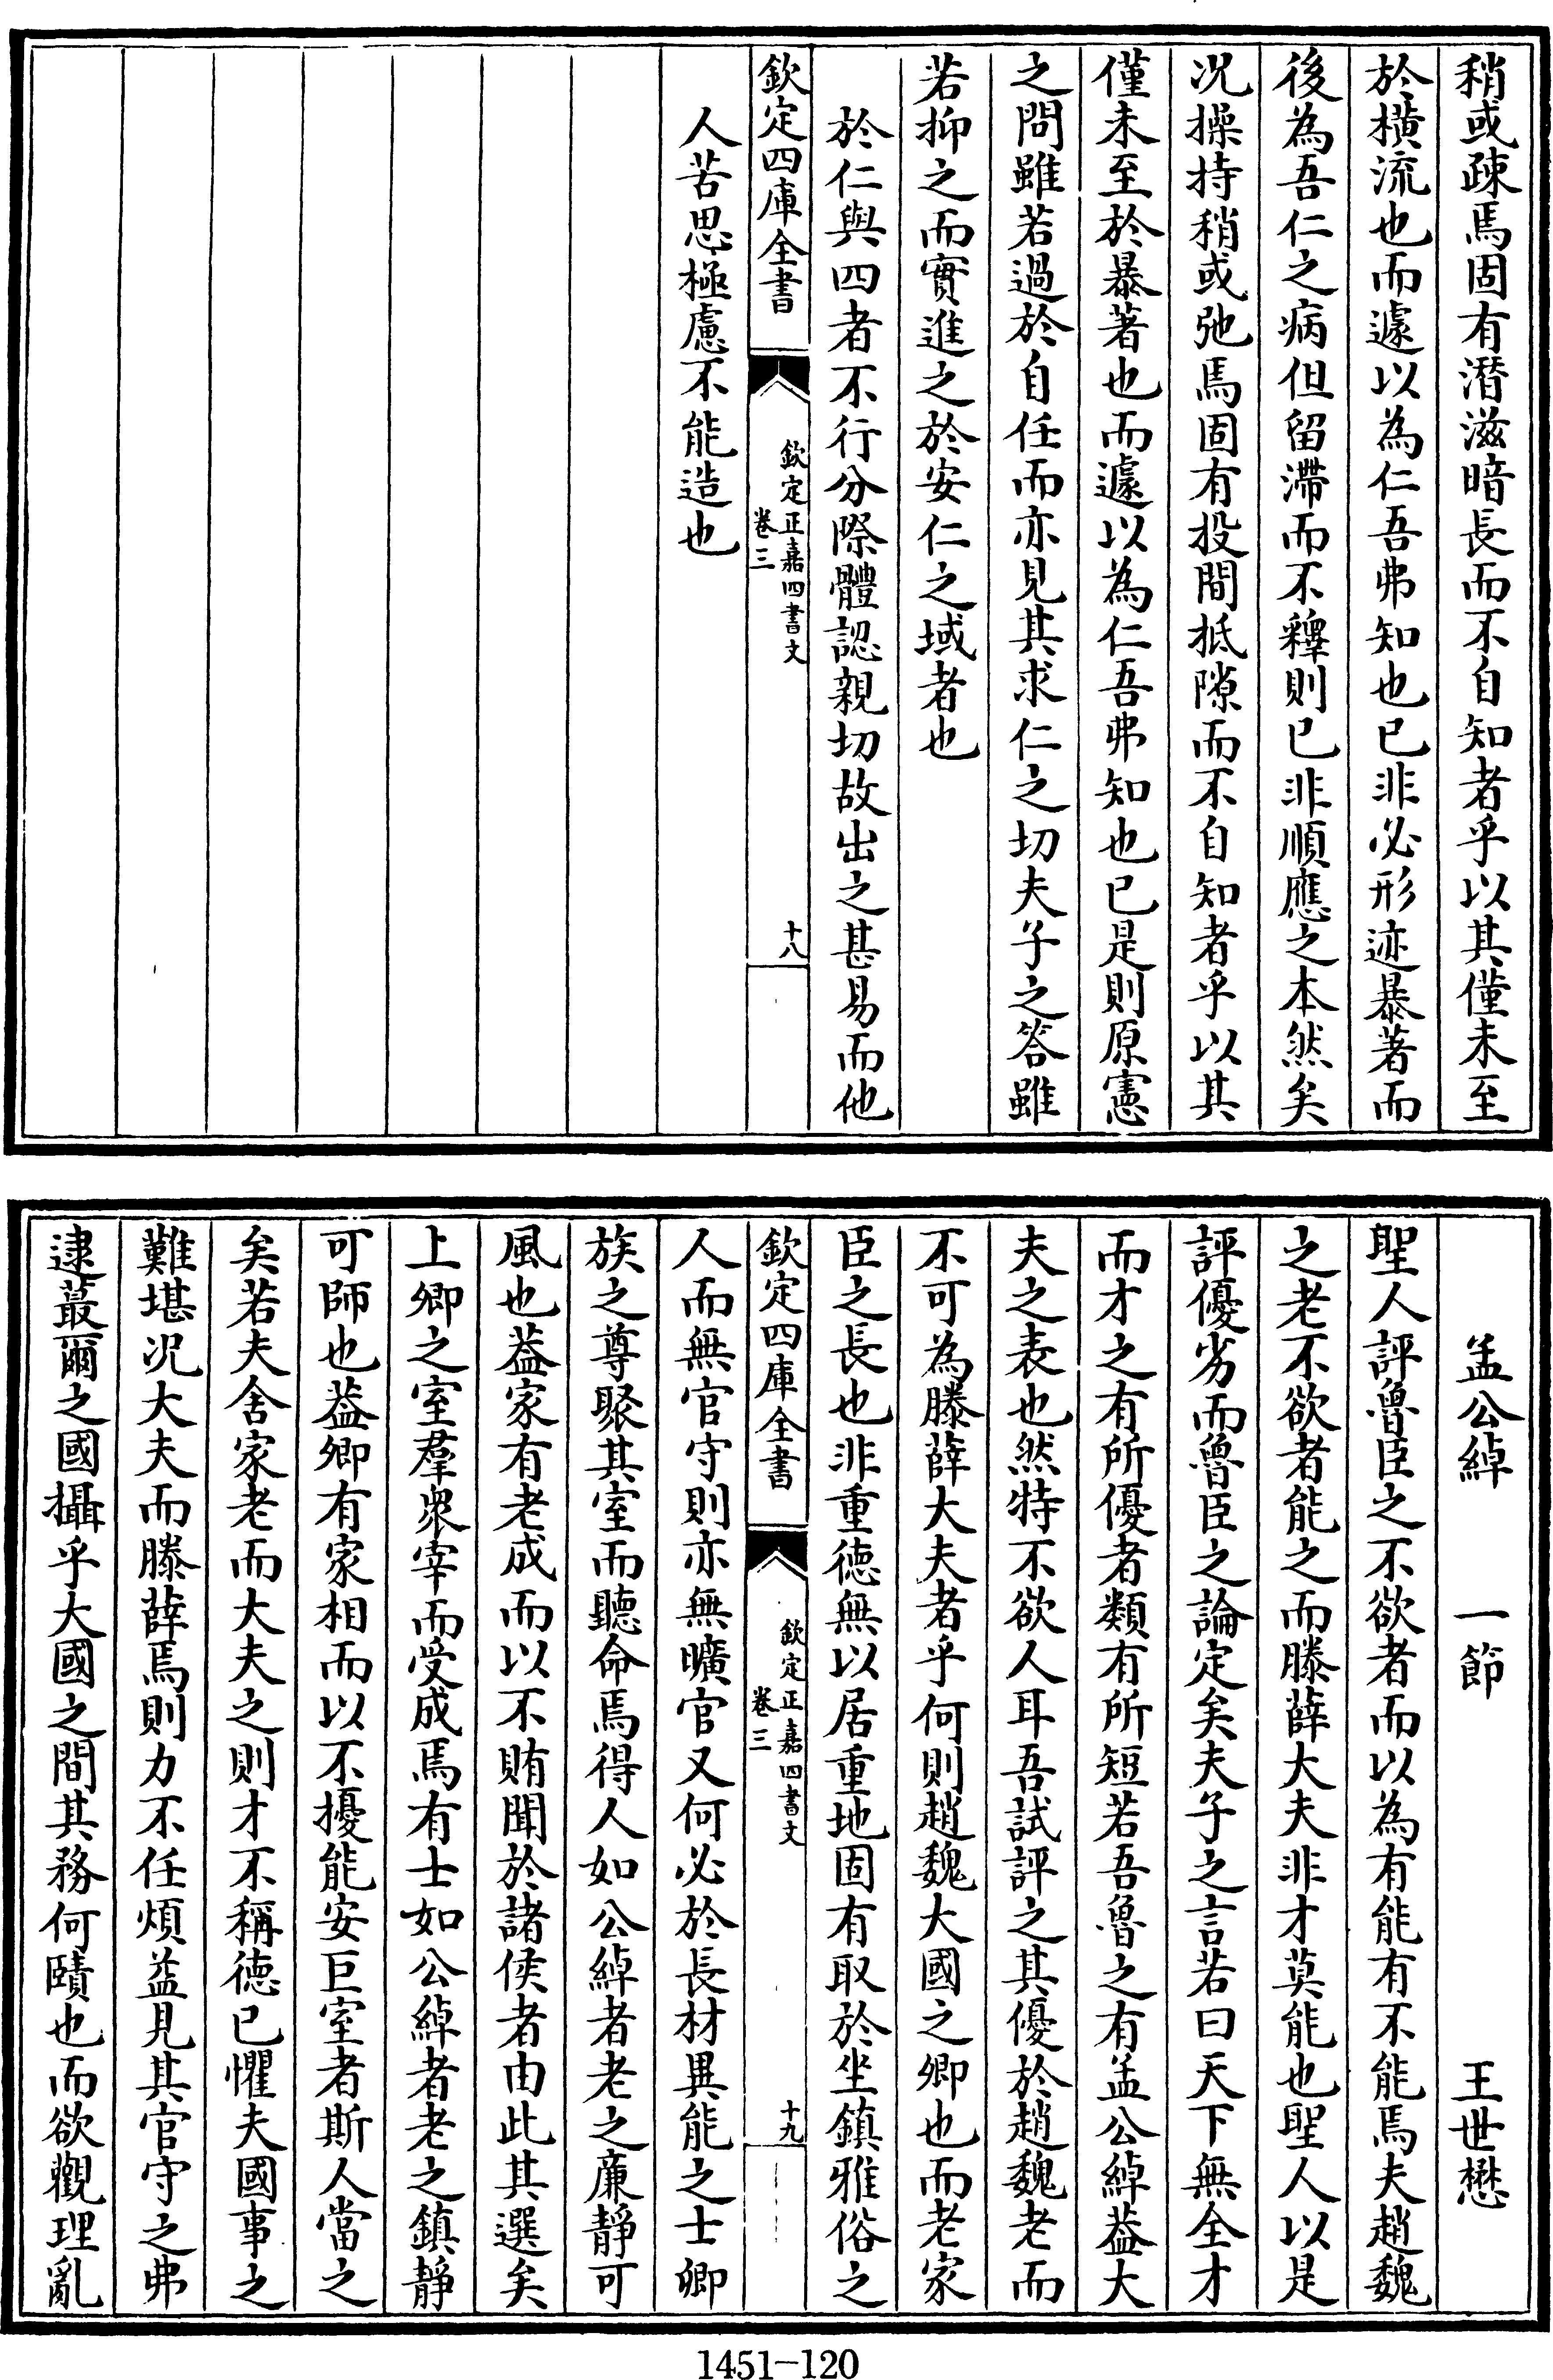 稍或疎焉固有潛滋暗長而不自知者乎以其僅未至
於橫流也而遽以為仁吾弗知也已非必形迹暴著而
後為吾仁之病但留滯而不釋則已非順應之本然矣
况操持稍或弛焉固有投間抵隙而不自知者乎以其
僅未至於暴著也而遽以為仁吾弗知也已是則原憲
之問雖若過於自任而亦見其求仁之切夫子之答雖
若抑之而實進之於安仁之域者也
於仁與四者不行分際體認親切故出之甚易而他
欽定四庫全書
欽定正嘉四書文
卷三
十八
人苦思極慮不能造也
孟公綽 一節 王世懋
聖人評魯臣之不欲者而以為有能有不能焉夫趙魏
之老不欲者能之而滕薛大夫非才莫能也聖人以是
評優劣而魯臣之論定矣夫子之言若曰天下無全才
而才之有所優者類有所短若吾魯之有孟公綽葢大
夫之表也然特不欲人耳吾試評之其優於趙魏老而
不可為滕薛大夫者乎何則趙魏大國之卿也而老家
臣之長也非重德無以居重地固有取於坐鎮雅俗之
欽定四庫全書
欽定正嘉四書文
卷三
十九
人而無官守則亦無曠官又何必於長材異能之士卿
族之尊聚其室而聽命焉得人如公綽者老之廉靜可
風也葢家有老成而以不賄聞於諸侯者由此其選矣
上卿之室羣衆宰而受成焉有士如公綽者老之鎮靜
可師也葢卿有家相而以不擾能安巨室者斯人當之
矣若夫舍家老而大夫之則才不稱德已懼夫國事之
難堪况大夫而滕薛焉則力不任煩益見其官守之弗
逮蕞爾之國攝乎大國之間其務何賾也而欲觀理亂
1451-120